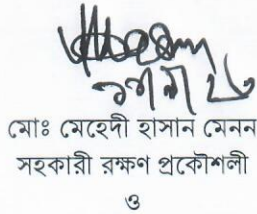 মোঃ মেহেদী হাসান মেনন
সহকারী রক্ষণ প্রকৌশলী
ও